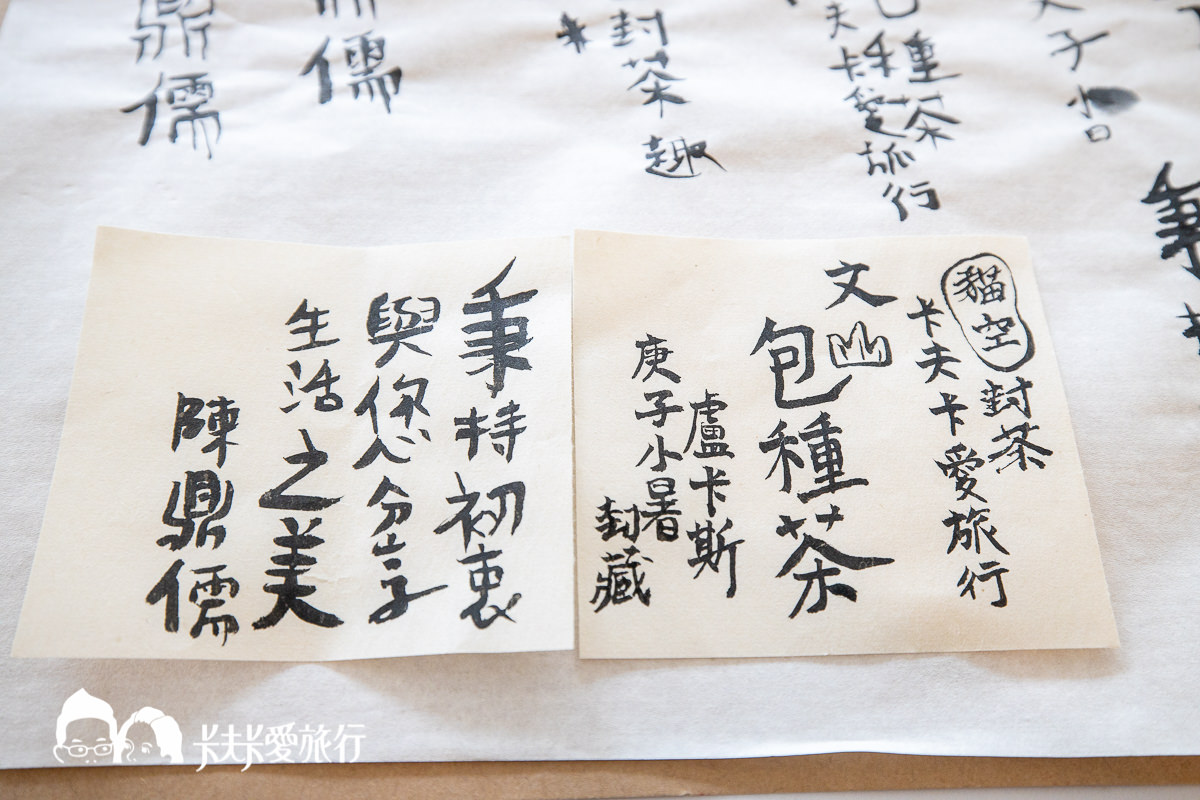 鼎儒
儒
封茶趣
夫卡愛旅行
包種茶
子
秉
貓空封茶
卡夫卡愛旅行
文山
包種茶
盧卡斯
庚子小暑
封藏
秉持初衷
與您分享
生活之美
陳鼎儒
卡夫卡愛旅行